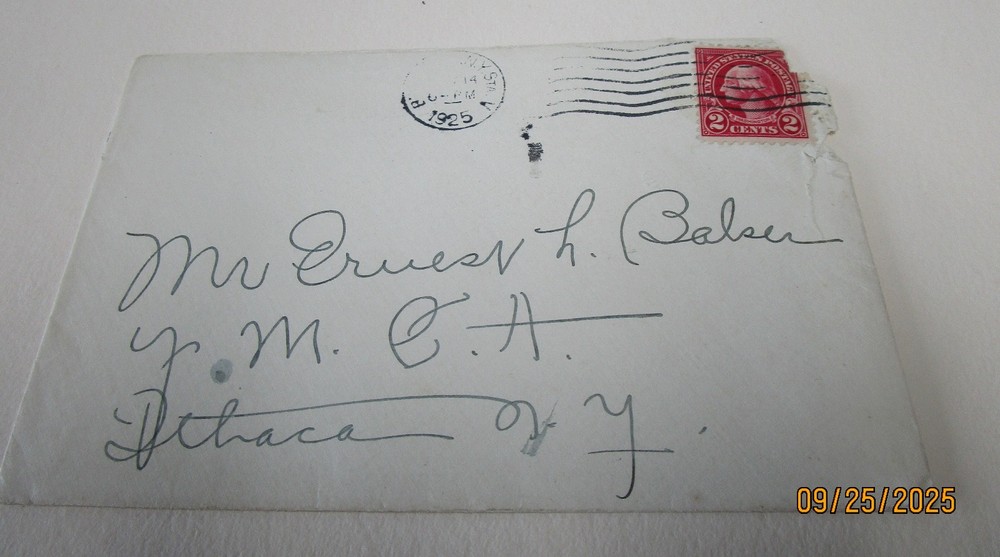 STA.
1925
UNITED STATES POSTAGE
2 CENTS 2
Mr Ernest L. Balser
Y. M. C. A.
Ithaca N Y.
09/25/2025